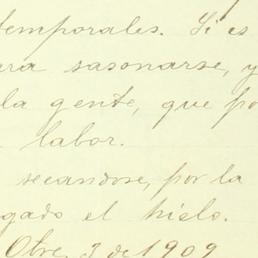 temporales. Si es
ra sasonarse, y
la gente, que po
labor.
secandose, por la
gado el hielo.
Obre 3 de 1909